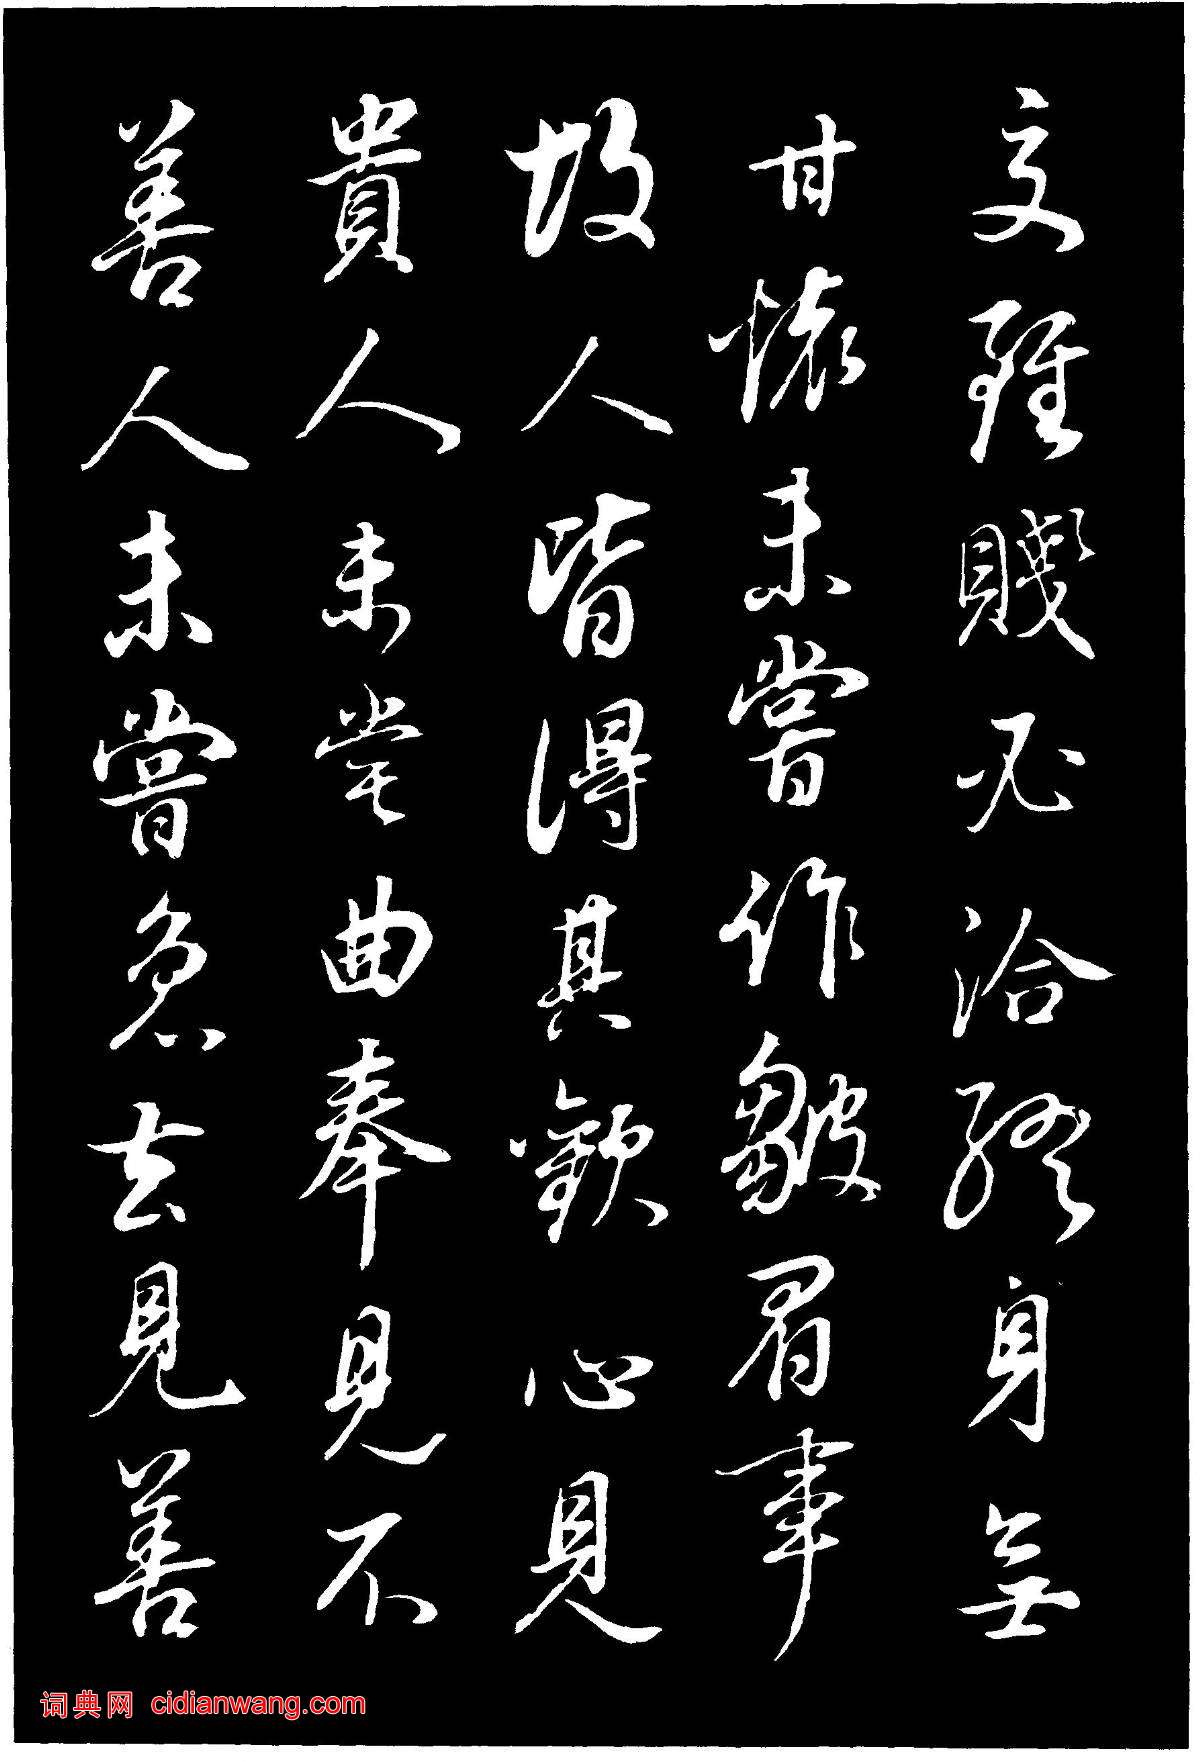 交雖賤必洽終身無
甘懷未嘗作皺眉事
故人皆得其歡心見
貴人未嘗曲奉見不
善人未嘗急去見善
词典网 cidianwang.com